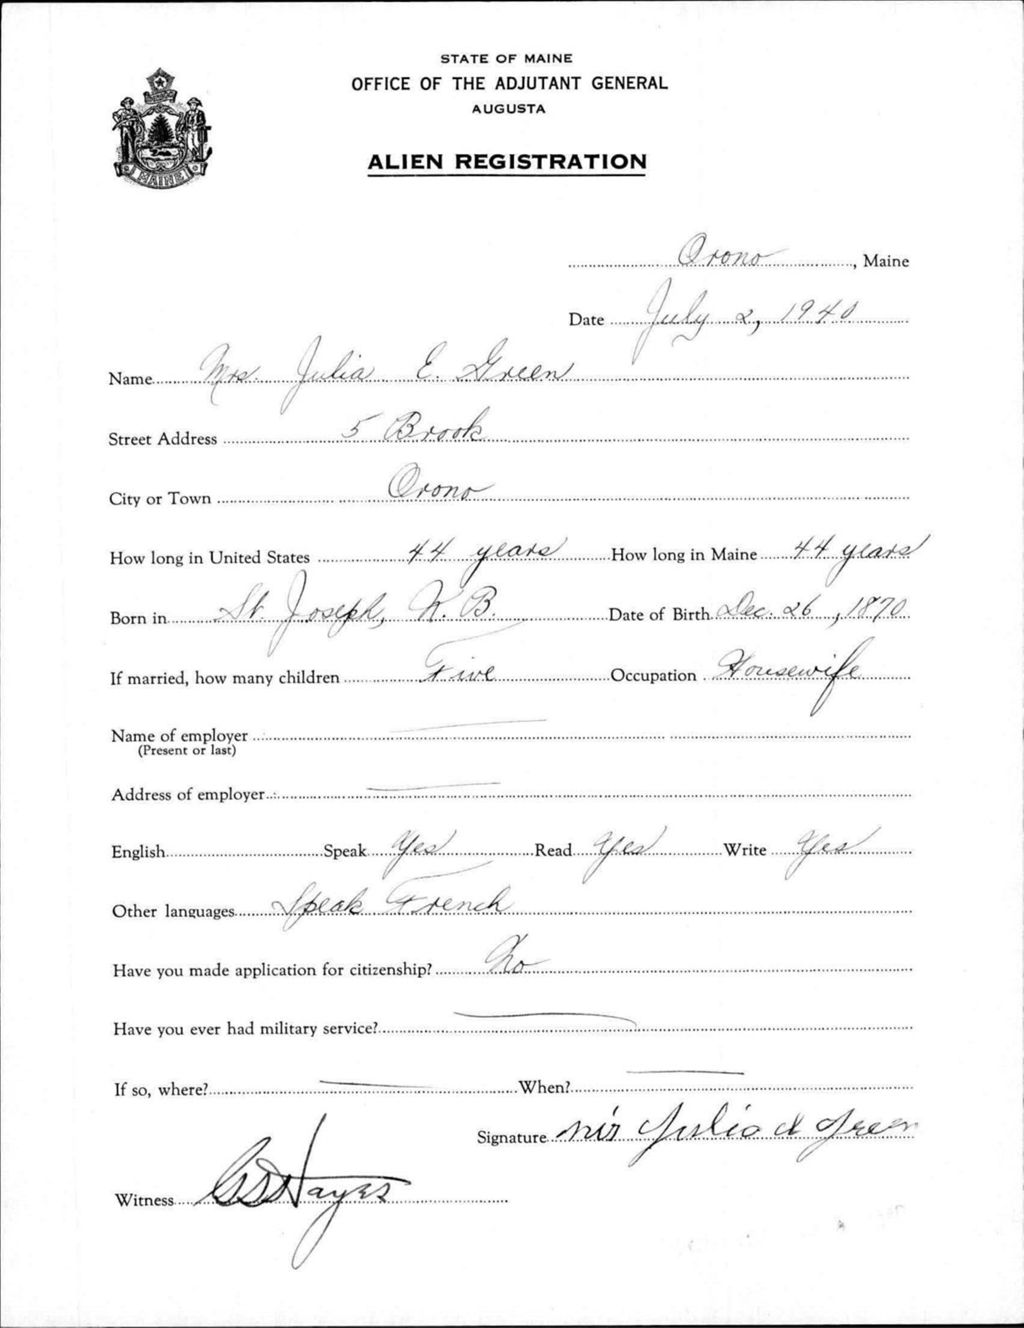 STATE OF MAINE
OFFICE OF THE ADJUTANT GENERAL
AUGUSTA
MAINE
ALIEN REGISTRATION
Orono, Maine
Date July 2, 1940
Name Mrs Julia E. Green
Street Address 5 Brook
City or Town Orono
How long in United States 44 years How long in Maine 44 years
Born in St. Joseph, N. B. Date of Birth Dec. 26, 1870
If married, how many children Five Occupation Housewife
Name of employer
(Present or last)
Address of employer
English Speak Yes Read Yes Write Yes
Other languages Speak French
Have you made application for citizenship? No
Have you ever had military service?
If so, where? When?
Signature Mrs Julia Green
Witness Hayes